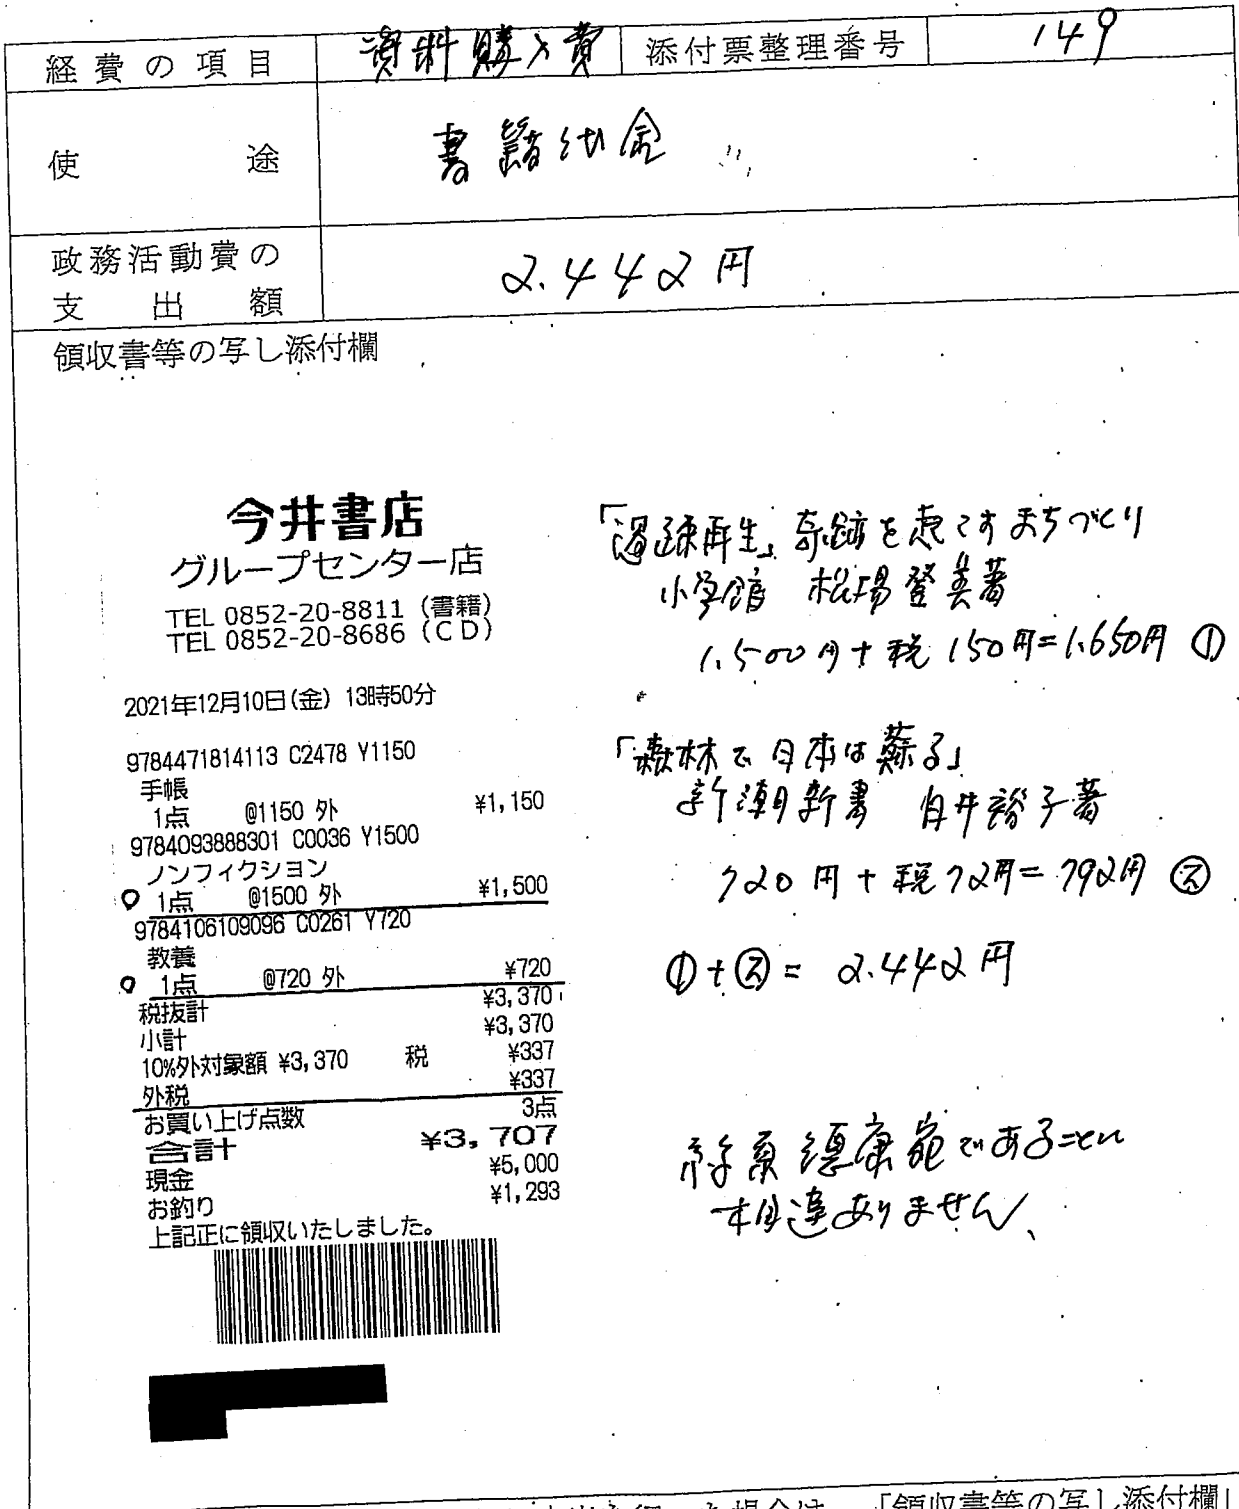 経費の項目 資料購入費 添付票整理番号 149
使途 書籍代金
政務活動費の
支出額 2.442円
領収書等の写し添付欄
今井書店
グループセンター店
TEL 0852-20-8811 (書籍)
TEL 0852-20-8686 (CD)
2021年12月10日(金) 13時50分
9784471814113 C2478 Y1150
手帳
1点 @1150 外 ¥1,150
9784093888301 C0036 Y1500
ノンフィクション
1点 @1500 外 ¥1,500
9784106109096 C0261 Y720
教養
1点 @720 外 ¥720
税抜計 ¥3,370
小計 ¥3,370
10%外対象額 ¥3,370 税 ¥337
外税 ¥337
お買い上げ点数 3点
合計 ¥3,707
現金 ¥5,000
お釣り ¥1,293
上記正に領収いたしました。
「過疎再生」奇跡を起こすまちづくり
小学館 松場登美著
1.500円+税150円=1.650円 ①
「森林で日本は蘇る」
新潮新書 白井裕子著
720円+税72円=792円 ②
①+②= 2.442円
絲原德康宛であることに
相違ありません、
「領収書等の写し添付欄」